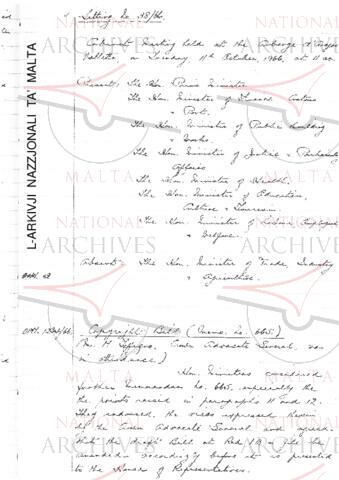 Sitting No. 48/66.
Cabinet Meeting held at the Auberge d'Aragon
Valletta, on Tuesday 11th October, 1966, at 11 a.m.
Present: The Hon. Prime Minister
The Hon. Minister of Finance, Customs
& Port.
The Hon. Minister of Public Building
& Works.
The Hon. Minister of Justice & Parliamentary
Affairs
The Hon. Minister of Health.
The Hon. Minister of Education,
Culture & Tourism.
The Hon. Minister of Labour, Employment
& Welfare.
Absent: The Hon. Minister of Trade, Industry
& Agriculture.
OPM.
Copyright Bill (Memo. No. 665.)
(Mr. M. Crown Advocate General, was
in attendance)
Hon. Ministers considered
further Memorandum No. 665, especially the
the points raised in paragraphs 11 and 12.
They endorsed the views expressed therein
by the Crown Advocate General and agreed
that the draft Bill at Red in file be
amended accordingly before it is presented
to the House of Representatives.
L-ARKIVJI NAZZJONALI TA' MALTA
NATIONAL
ARCHIVES
MALTA